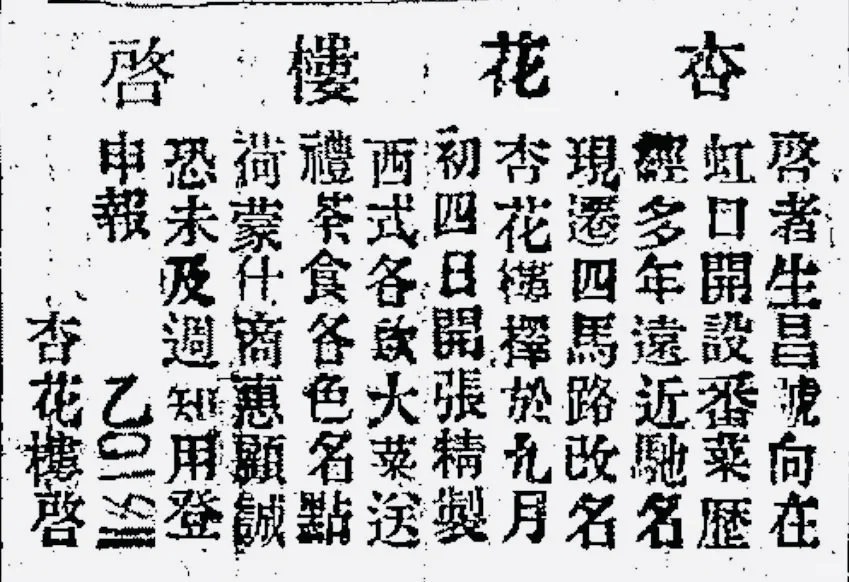 杏花樓啓
啓者生昌號向在
虹口開設番菜歷
經多年遠近馳名
現遷四馬路改名
杏花樓擇於九月
初四日開張精製
西式各欵大菜送
禮茶食各色名點
荷蒙仕商惠顧誠
恐未及週知用登
申報
杏花樓啓